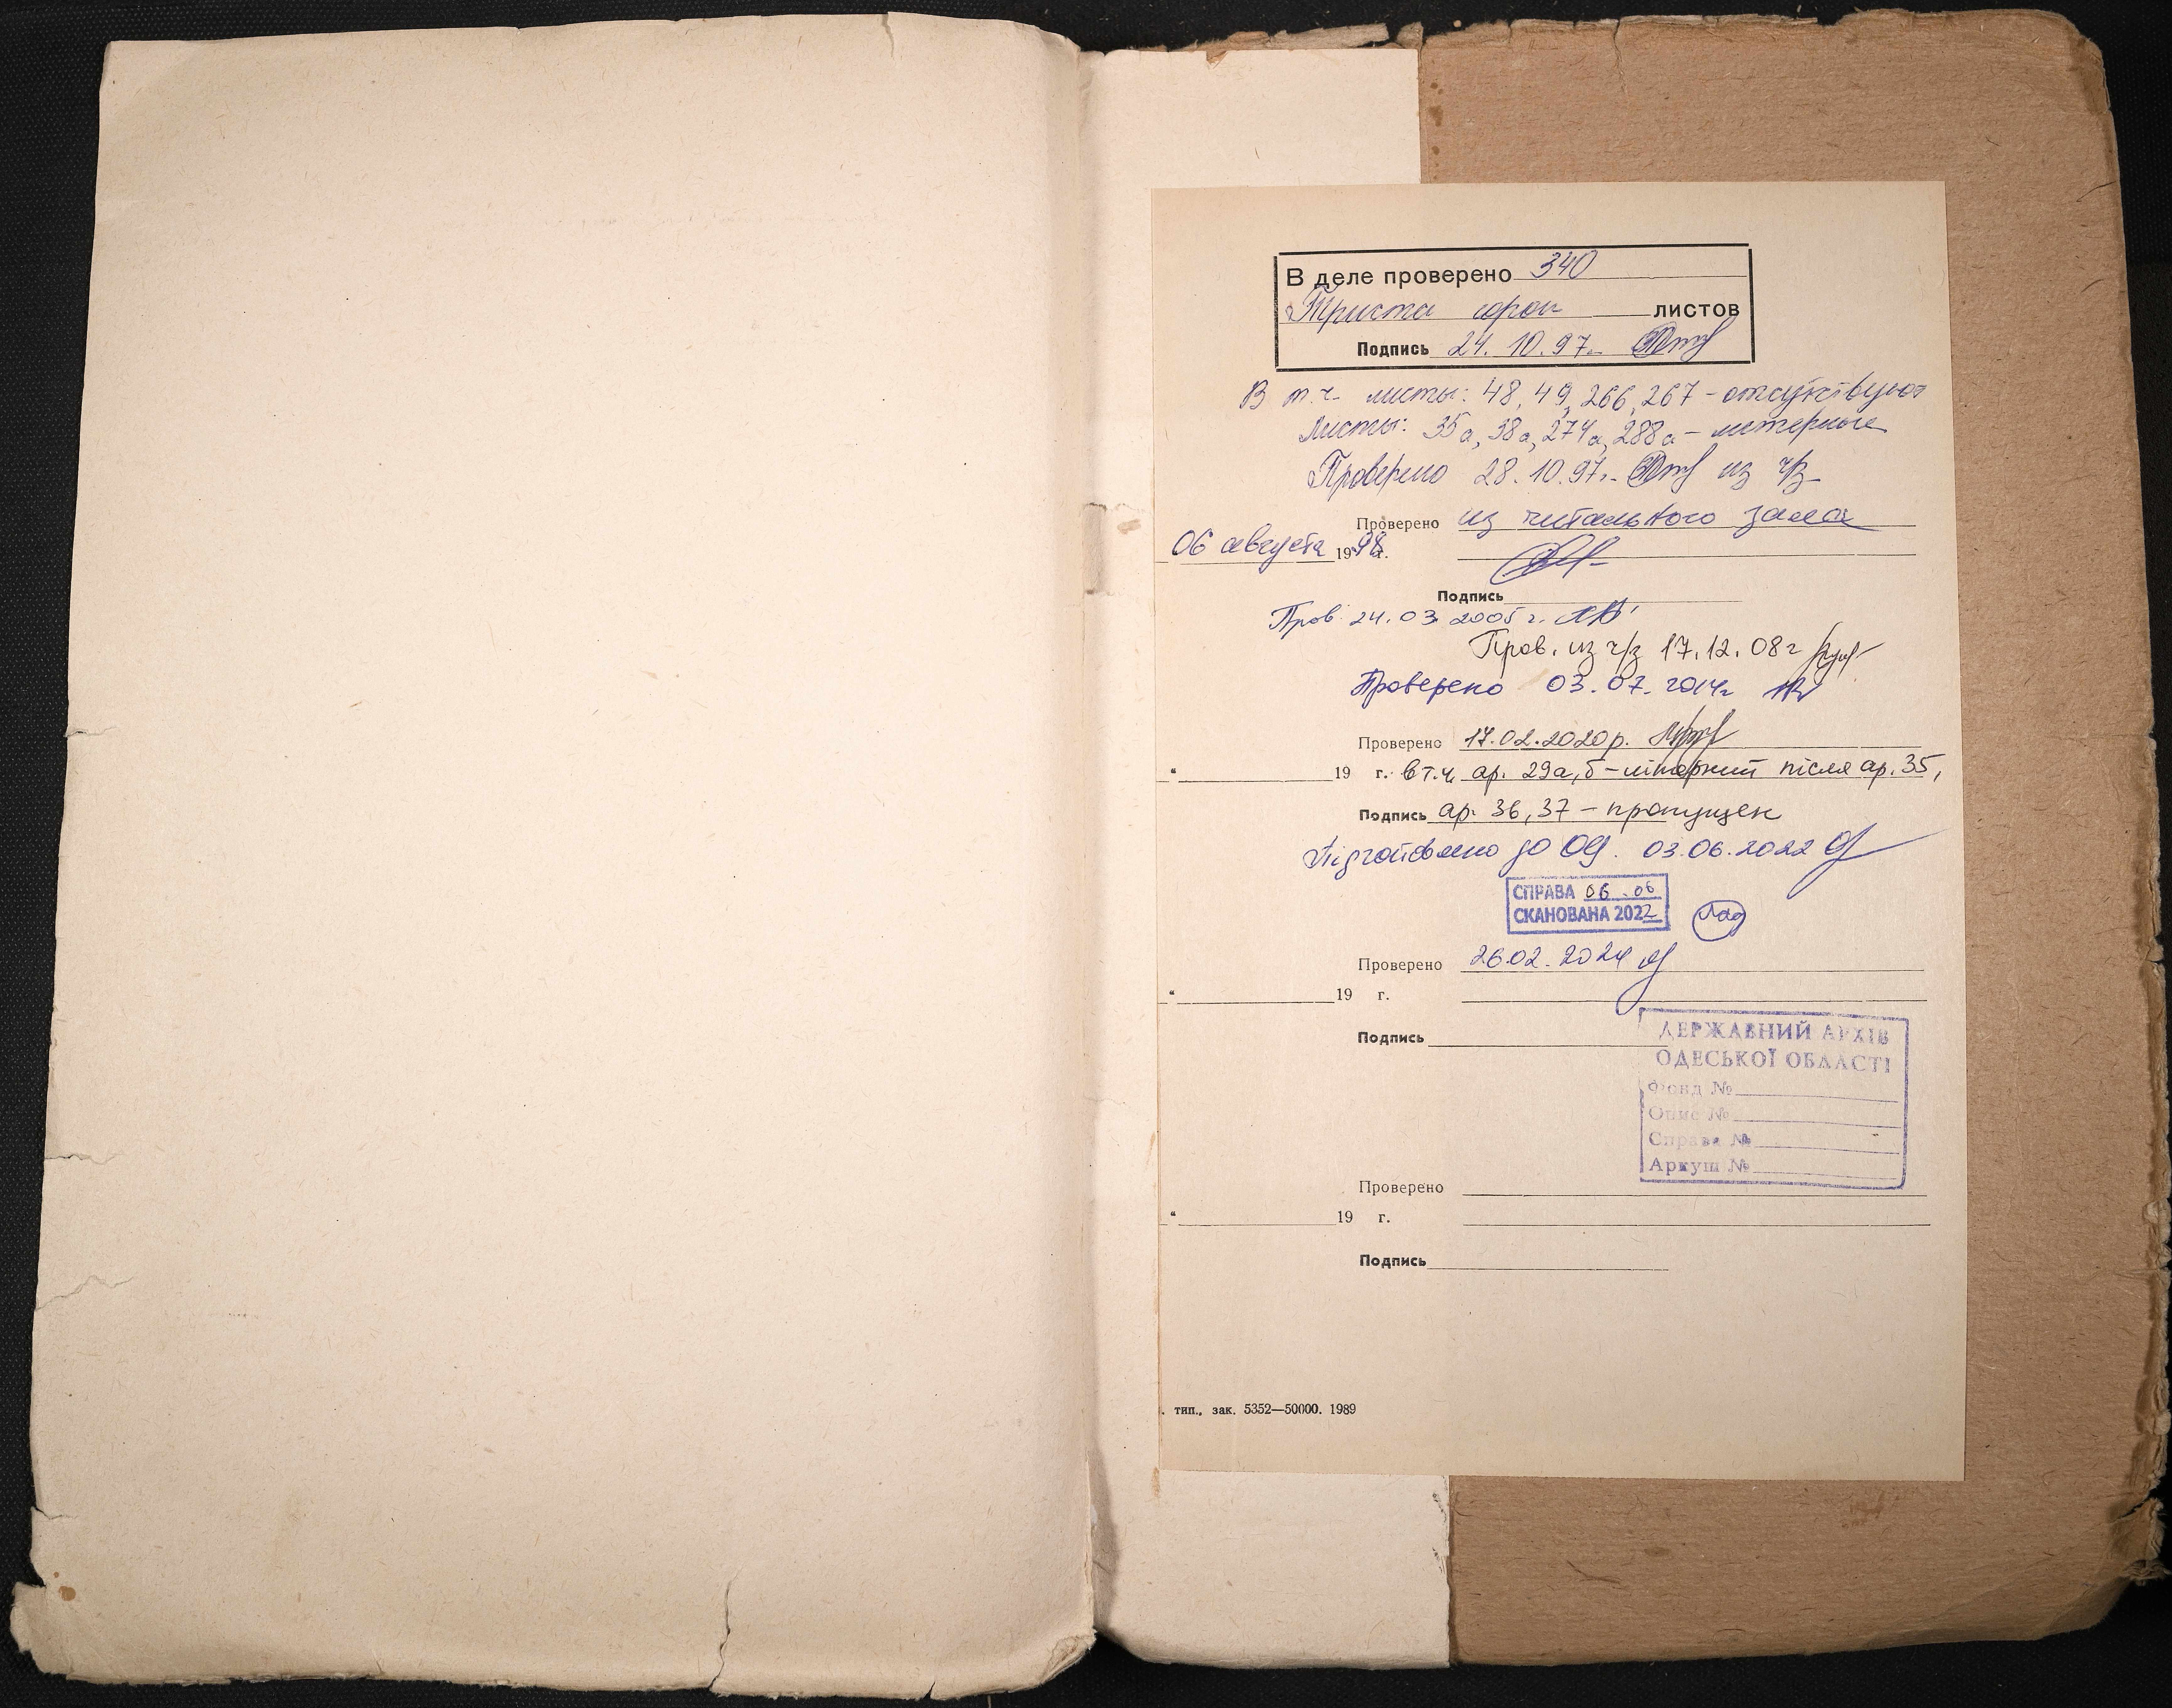 В деле проверено 340
Триста сорок листов
Подпись 24.10.97.
В т.ч. листы: 48, 49, 266, 267 - отсутствуют
Листы: 35а, 38а, 274а, 288а - литерные
Проверено 28.10.97г. из ч/з
Проверено из читального зала
06 августа 1998 г.
Подпись
Пров. 24.03 2005 г.
Пров. из ч/з 17.12.08г
Проверено 03.07.2014г
Проверено 17.02.2020р.
“ 19 г. в т.ч. ар. 29а,б - літерний після ар. 35,
Подпись ар. 36, 37 - пропущен
Підготовлено до ОЦ. 03.06.2022
СПРАВА 06.06
СКАНОВАНА 2022
Проверено 26.02.2024
“ 19 г.
Подпись
ДЕРЖАВНИЙ АРХІВ
ОДЕСЬКОЇ ОБЛАСТІ
Фонд №
Опис №
Справа №
Аркуш №
Проверено
“ 19 г.
Подпись
. тип., зак. 5352—50000. 1989